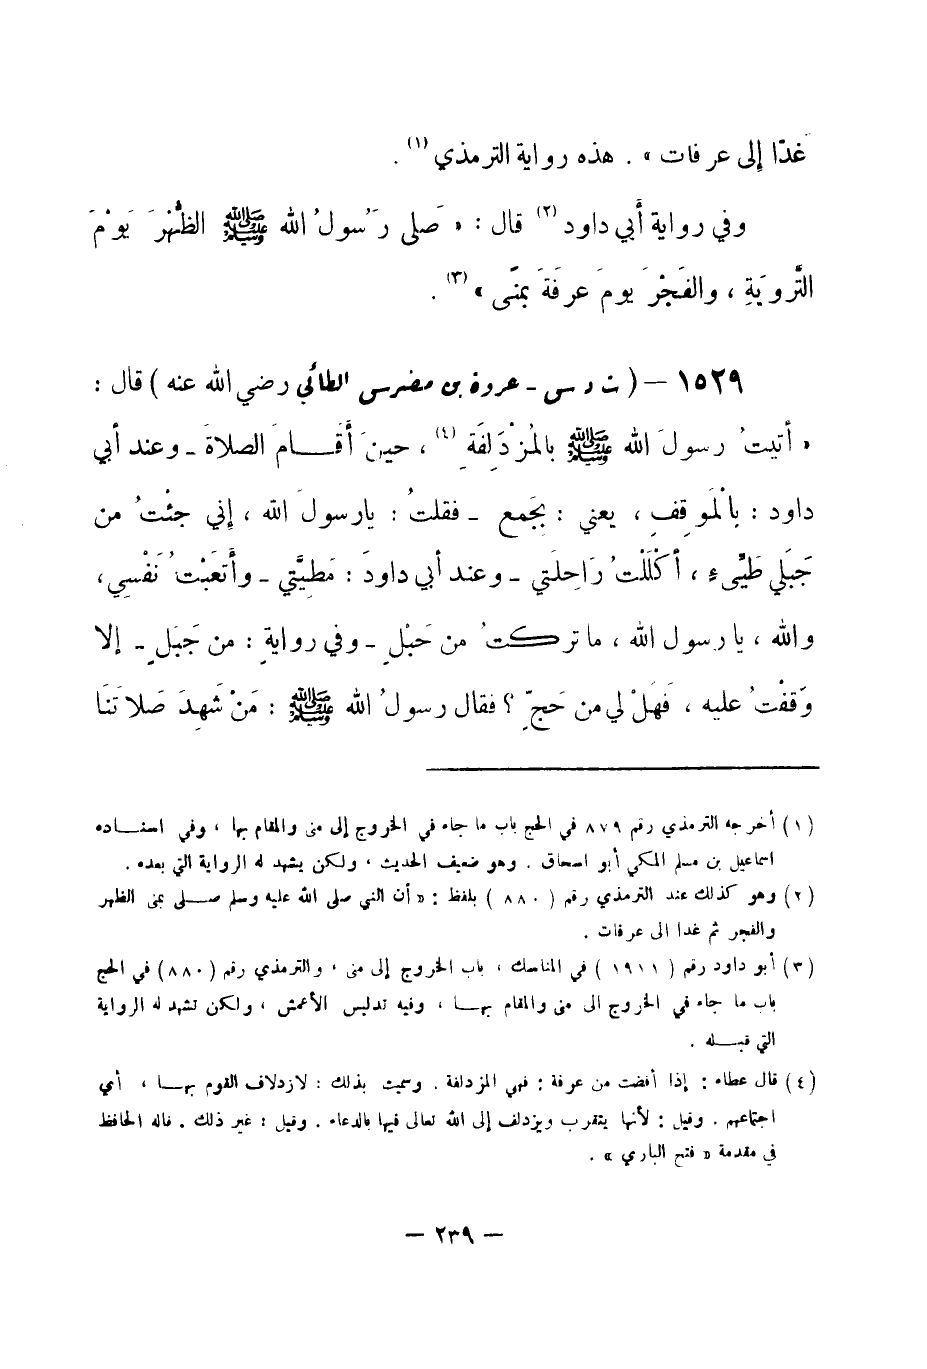 غدًا إلى عرفات » . هذه رواية الترمذي (١) .
وفي رواية أبي داود (٢) قال : « صَلى رَسُولُ الله ﷺ الظُّهْرَ يَوْمَ
التَّروِيَةِ ، والفَجْرَ يومَ عرفَةَ بِمنًى » (٣) .
١٥٢٩ – ( ت د س - عروة بن مضرسى الطائي رضي الله عنه ) قال :
« أتيتُ رسولَ الله ﷺ بالمُزْدَلِفَةِ (٤) ، حينَ أَقَامَ الصلاةَ - وعند أبي
داود : بِالْمَوقِفِ ، يعني : بِجَمع - فقلتُ : يا رسولَ الله ، إني جئْتُ من
جَبَلي طَيِّىءِ ، أَكْلَلْتُ رَاحِلَتي - وعند أبي داودَ : مَطِيَّتي - وأَتعَبْتُ نَفْسِي،
والله ، يا رسول الله ، ما تركتُ من حَبْلٍ - وفي روايةٍ : من جَبَلٍ - إلا
وَقَفْتُ عليه ، فَهَلْ لي من حَجٍّ ؟ فقال رسولُ الله ﷺ : مَنْ شَهِدَ صَلاتَنَا
(١) أخرجه الترمذي رقم ٨٧٩ في الحج باب ما جاء في الخروج إلى منى والمقام بها ، وفي اسناده
اسماعيل بن مسلم المكي أبو اسحاق . وهو ضعيف الحديث ، ولكن يشهد له الرواية التي بعده .
(٢) وهو كذلك عند الترمذي رقم ( ٨٨٠ ) بلفظ : « أن النبي صلى الله عليه وسلم صلى بمنى الظهر
والفجر ثم غدا الى عرفات .
(٣) أبو داود رقم ( ١٩١١ ) في المناسك ، باب الخروج إلى منى ، والترمذي رقم (٨٨٠) في الحج
باب ما جاء في الخروج الى منى والمقام بها ، وفيه تدليس الأعمش ، ولكن تشهد له الرواية
التي قبله .
(٤) قال عطاء : إذا أفضت من عرفة : فهي المزدلفة . وسميت بذلك : لازدلاف القوم بها ، أي
اجتماعهم . وقيل : لأنها يتقرب ويزدلف إلى الله تعالى فيها بالدعاء . وقيل : غير ذلك . قاله الحافظ
في مقدمة « فتح الباري » .
– ٢٣٩ –